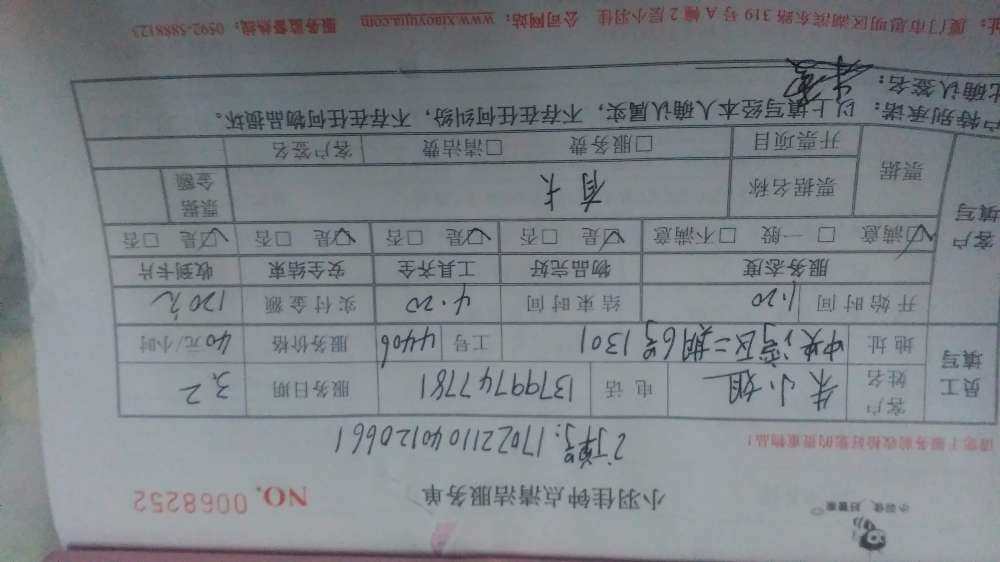 小羽佳，好管家
小羽佳钟点清洁服务单
NO. 0068252
订单号：170221104012066 1
请您于服务前收检好您的贵重物品！
员工填写
客户姓名 朱小姐 电话 13799747781 服务日期 3.2
地址 中央湾区二期6号1301 工号 4406 服务价格 40元/小时
开始时间 1.20 结束时间 4.20 实付金额 120元
客户填写
服务态度 物品完好 工具齐全 安全结束 收到卡片
☑满意 □一般 □不满意 ☑是 □否 ☑是 □否 ☑是 □否 ☑是 □否
票据 票据名称 有卡 票据金额
开票项目 □服务费 □清洁费 客户签名
户特别承诺：以上填写经本人确认属实，不存在任何纠纷，不存在任何物品损坏。
此确认签名：
址：厦门市思明区湖滨东路319号A幢2层小羽佳 公司网站：www.xiaoyujia.com 服务监督热线：0592-5888123